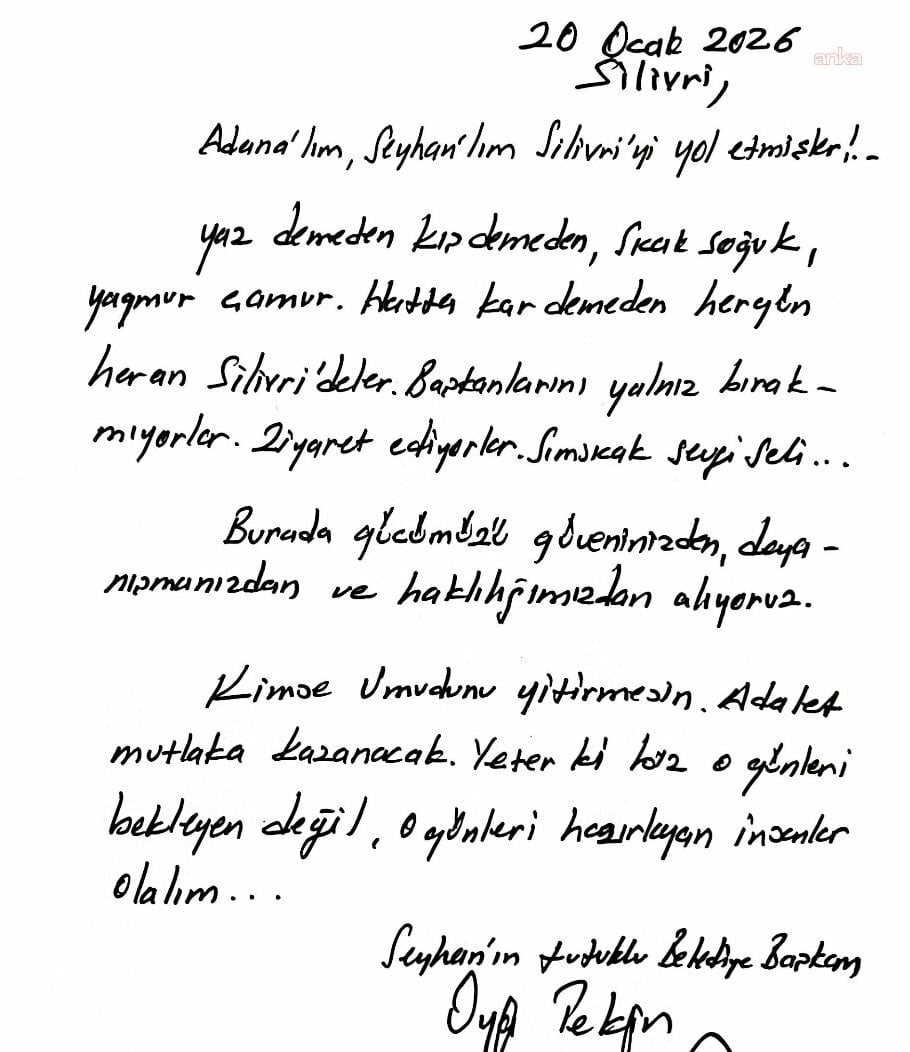 20 Ocak 2026
anka
Silivri,
Adana'lım, Seyhan'lım Silivri'yi yol etmişler!..
yaz demeden kış demeden, sıcak soğuk,
yağmur çamur. Hatta kar demeden hergün
heran Silivri'deler. Başkanlarını yalnız bırak-
mıyorlar. Ziyaret ediyorlar. Sımsıcak sevgi seli...
Burada gücümüzü güveninizden, daya-
nışmanızdan ve haklılığımızdan alıyoruz.
Kimse Umudunu yitirmesin. Adalet
mutlaka kazanacak. Yeter ki biz o günleri
bekleyen değil, o günleri hazırlayan insanlar
olalım...
Seyhan'ın tutuklu Belediye Başkanı
Oya Tekin